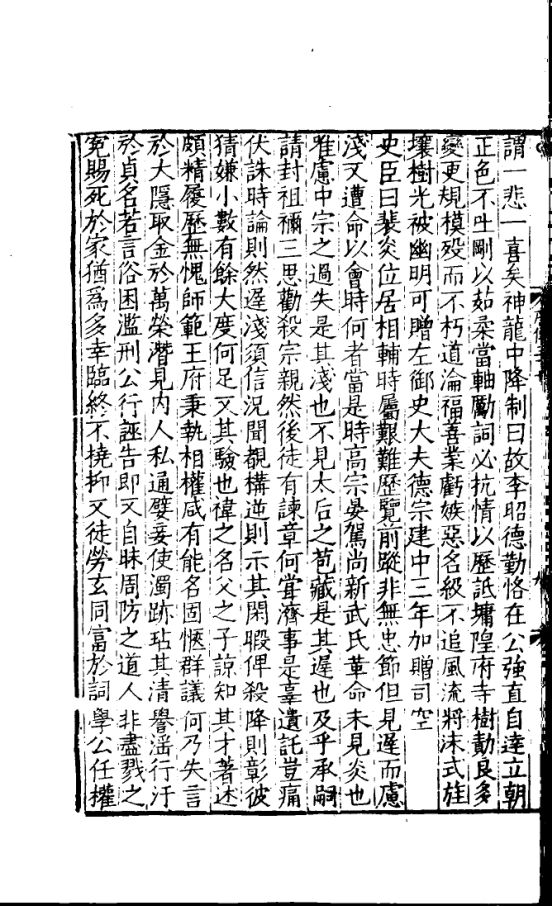 謂一悲一喜矣神龍中降制曰故李昭德勤恪在公強直自達立朝
正色不吐剛以茹柔當軸勵詞必抗情以歷詆墉隍府寺樹勣良多
變更規模歿而不朽道淪福善業虧嫉惡名級不追風流將沫式旌
壤樹光被幽明可贈左御史大夫德宗建中三年加贈司空
史臣曰裴炎位居相輔時屬艱難歷覽前蹤非無忠節但見遲而慮
淺又遭命以會時何者當是時高宗晏駕尚新武氏革命未見炎也
唯慮中宗之過失是其淺也不見太后之苞藏是其遲也及乎承嗣
請封祖禰三思勸殺宗親然後徒有諫章何嘗濟事是辜遺託豈痛
伏誅時論則然遲淺須信況聞覩構逆則示其閑暇俾殺降則彰彼
猜嫌小數有餘大度何足又其驗也禕之名父之子諒知其才著述
頗精履歷無愧師範王府秉執相權咸有能名固愜群議何乃失言
於大隱取金於萬榮潛見內人私通嬖妾使濁跡玷其清譽滛行汙
於貞名若言俗困濫刑公行誣告即又自昧周防之道人非盡戮之
冤賜死於家猶爲多幸臨終不橈抑又徒勞玄同富於詞學公任權